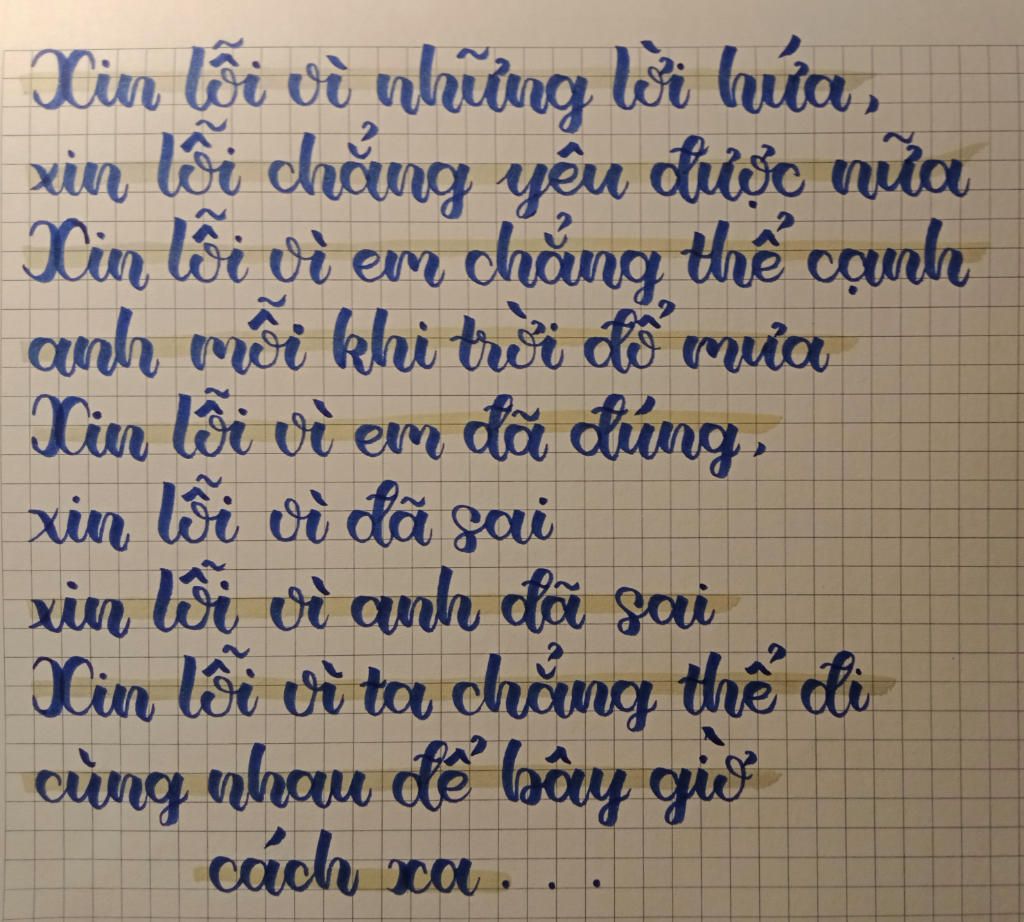 Xin lỗi vì những lời hứa,
xin lỗi chẳng yêu được nữa
Xin lỗi vì em chẳng thể cạnh
anh mỗi khi trời đổ mưa
Xin lỗi vì em đã đúng,
xin lỗi vì đã sai
xin lỗi vì anh đã sai
Xin lỗi vì ta chẳng thể đi
cùng nhau để bây giờ
cách xa . . .